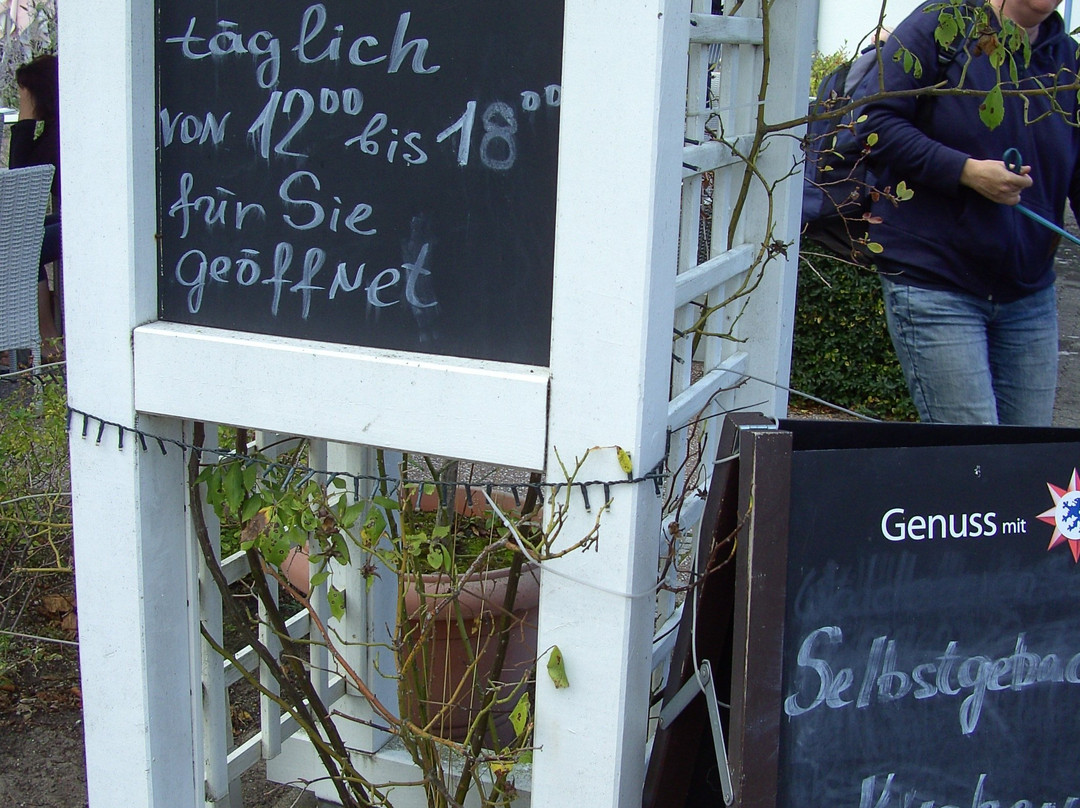 täglich
von 12⁰⁰ bis 18⁰⁰
für Sie
geöffnet
Genuss mit
Selbstgebac